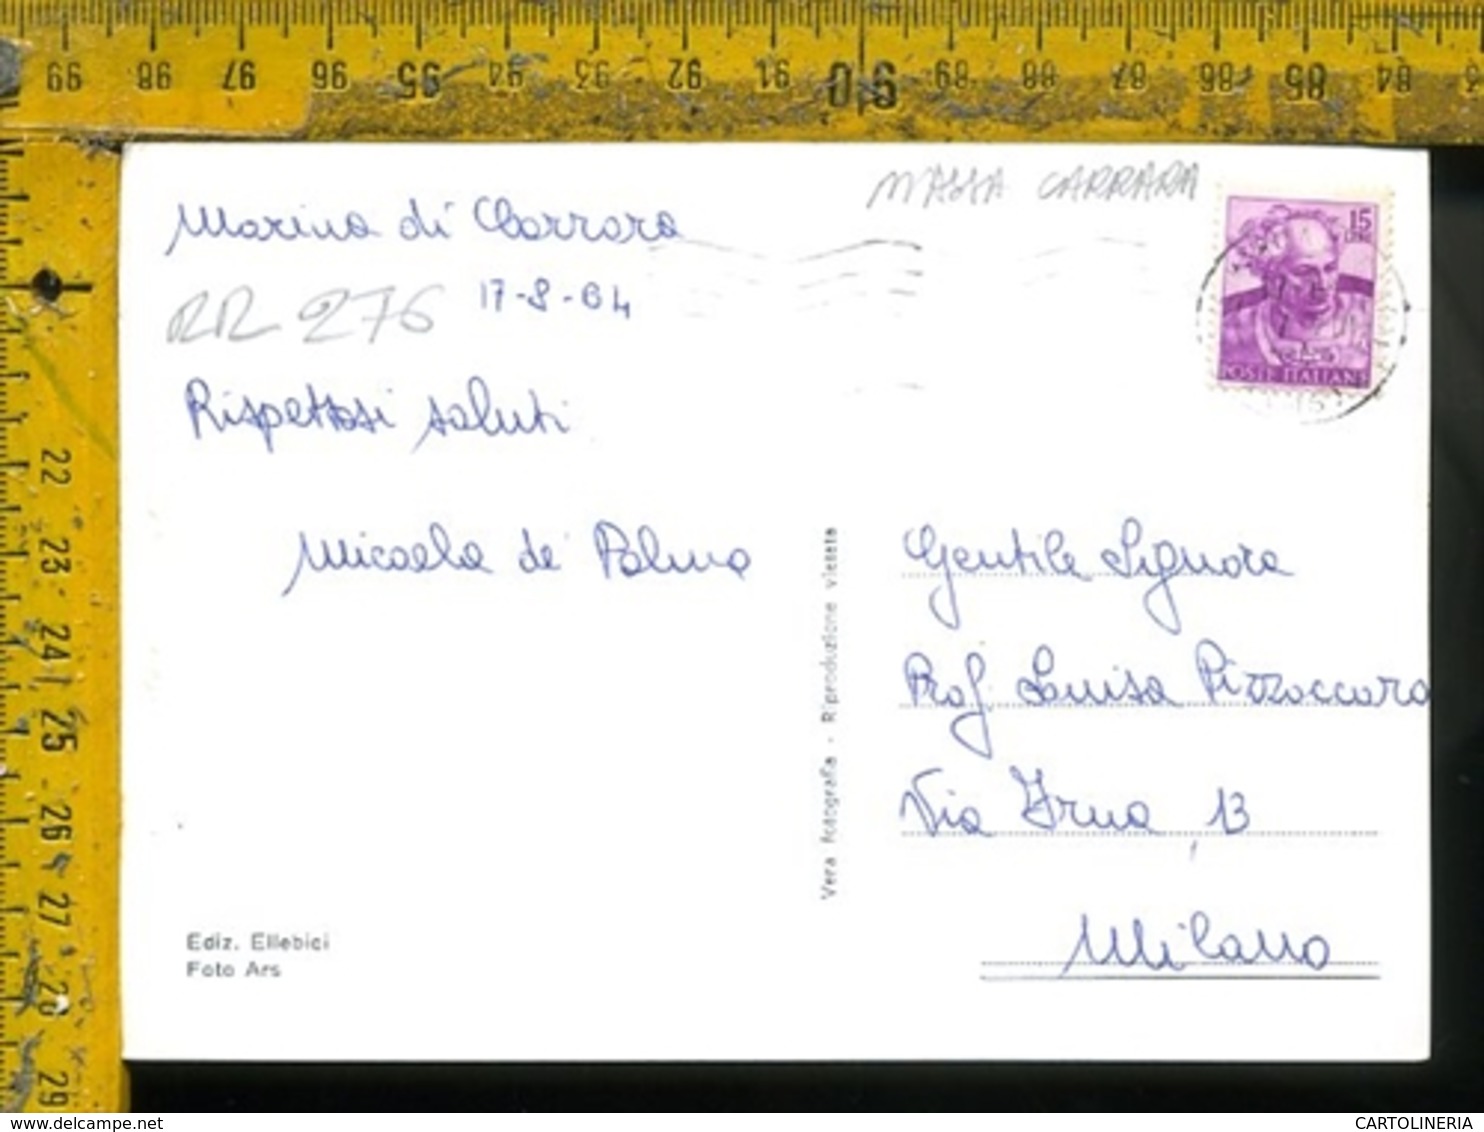 99 98 97 96 95 94 93 92 91 90 89 88 87 86 85 84
MASSA CARRARA
Marina di Carrara
17-8-64
RR 276
Rispettosi saluti
Micaela de Palma
15
LIRE
POSTE ITALIANE
Gentile Signora
Prof Luisa Pizzoccaro
Via Irma, 13
Milano
Vera fotografia - Riproduzione vietata
Ediz. Ellebici
Foto Ars
22
23
24
25
26
27
28
29
delcampe.net
CARTOLINERIA